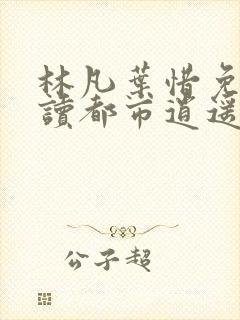 林凡葉惜免
讀都市逍遥
公子超